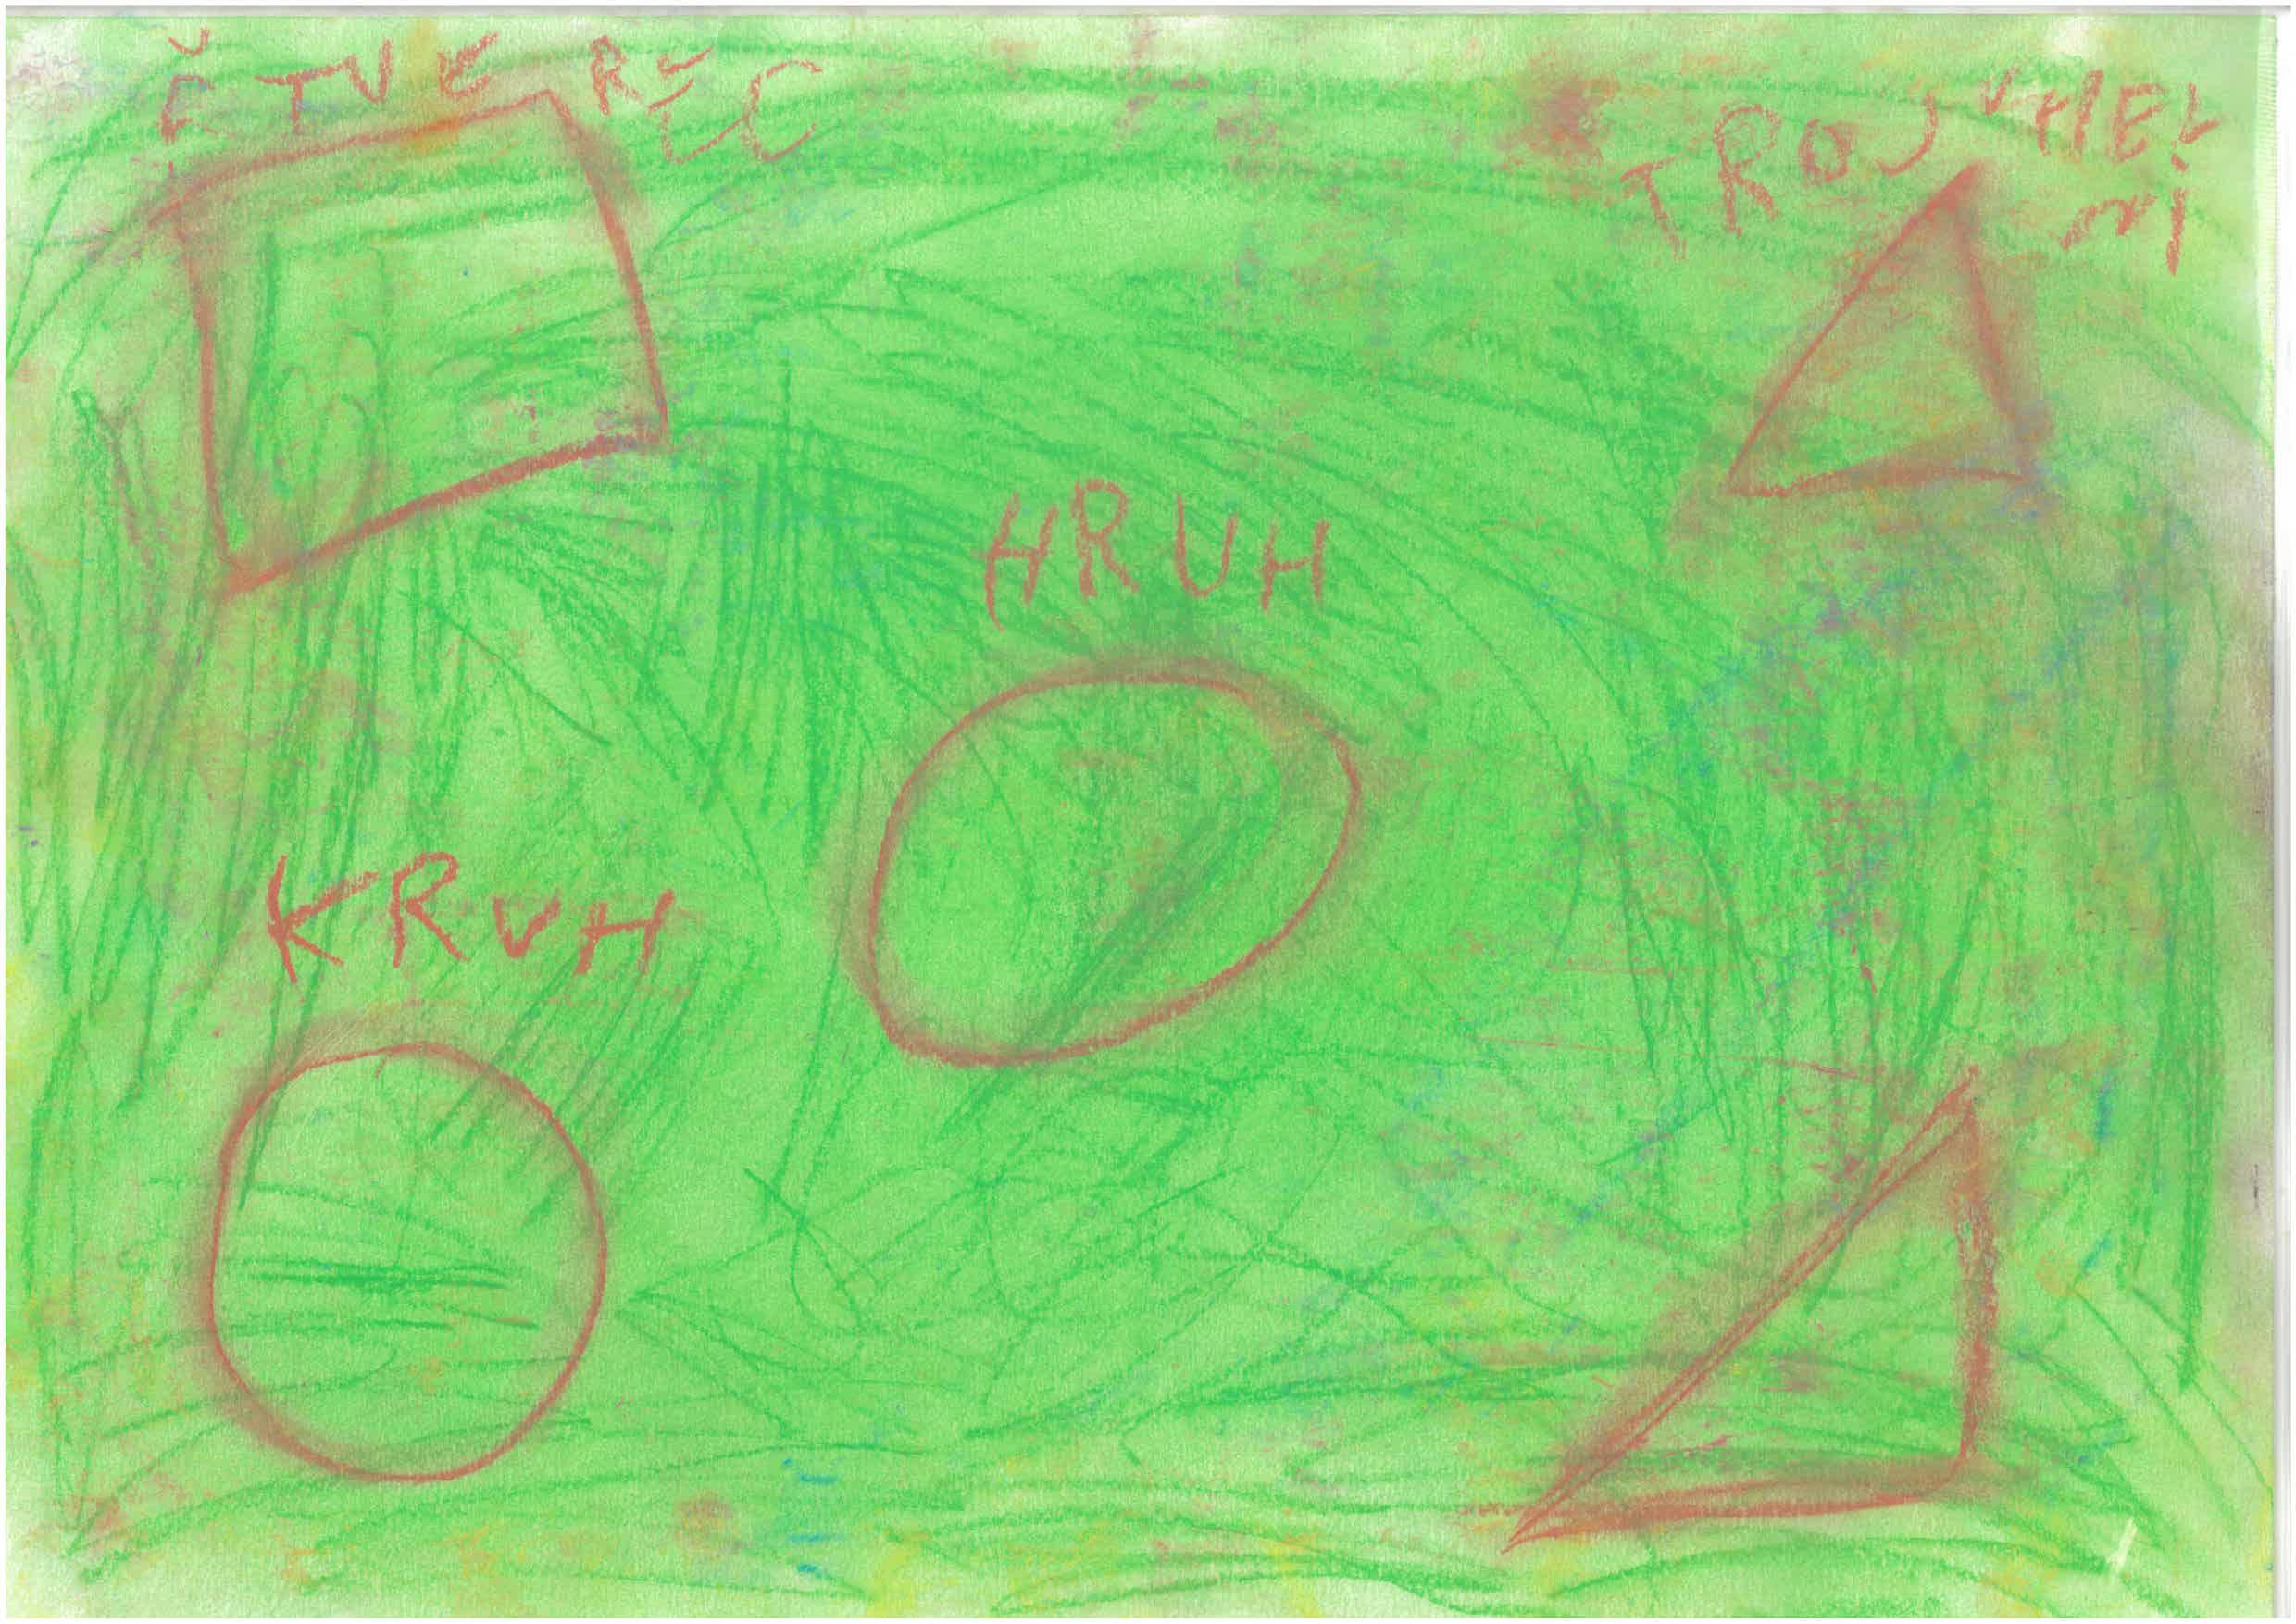 ČTVEREC
TROJUHEL
NI
HRUH
KRUH